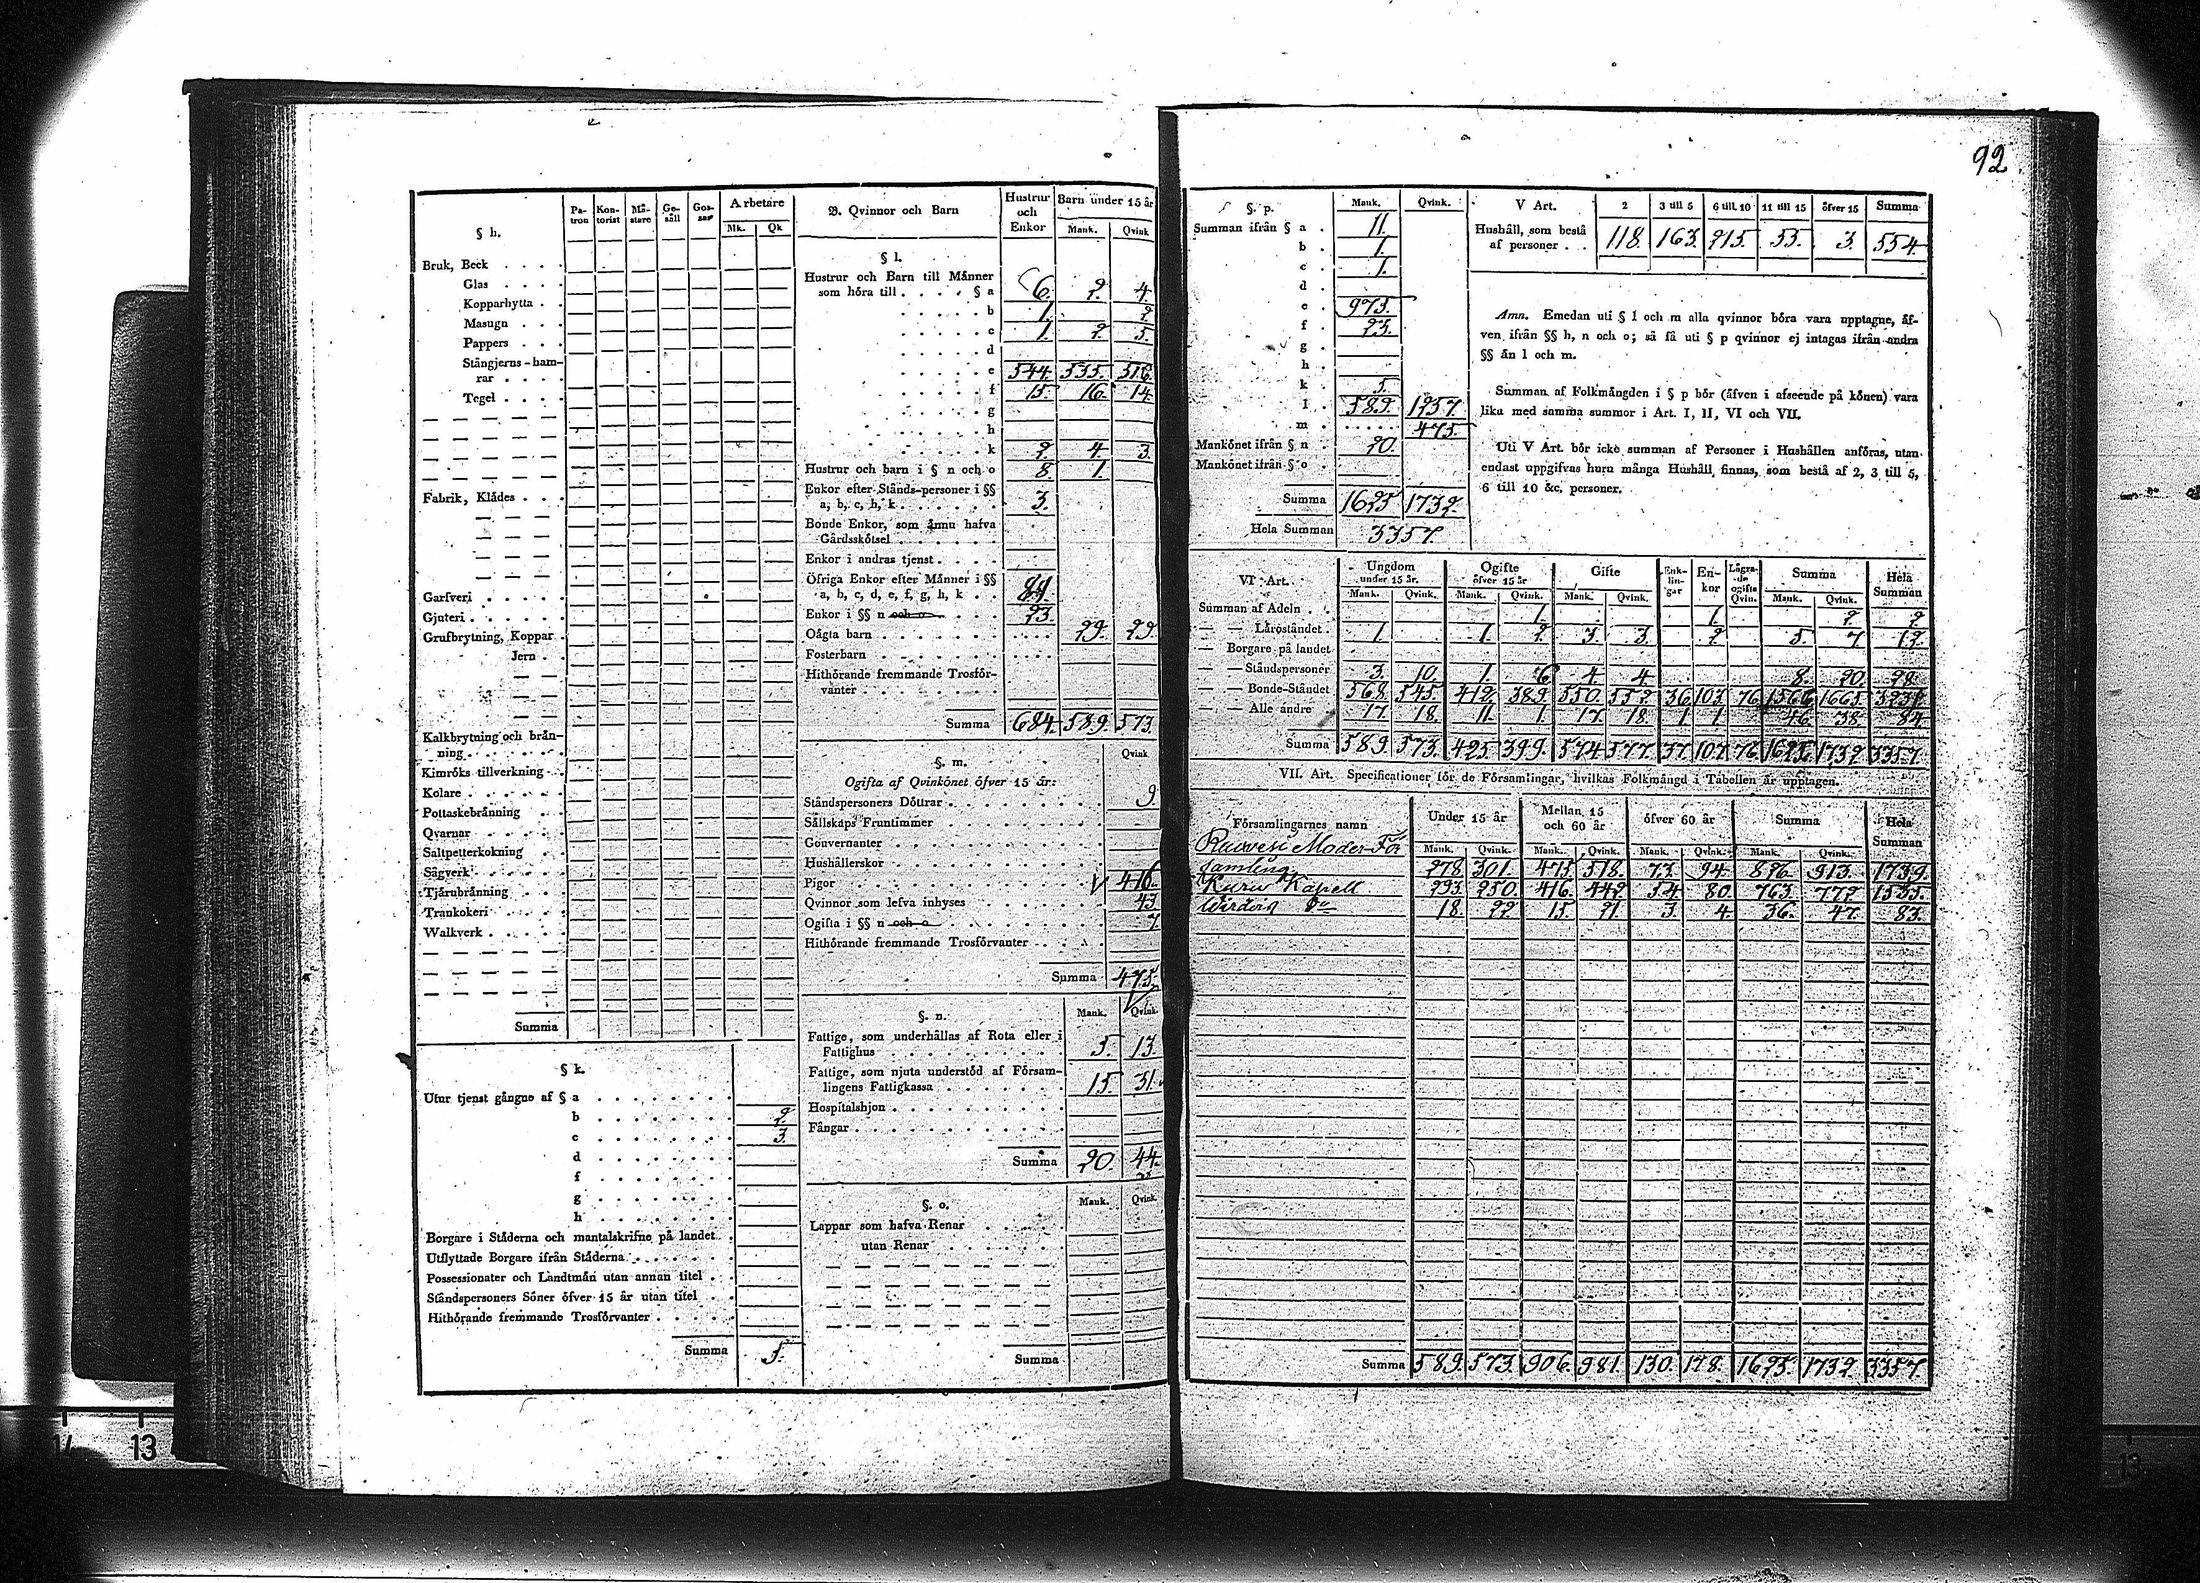 92
§ h.
Pa-tron Kon-torist Mä-stare Ge-säll Gos-sar Arbetare
Mk. Qk
Bruk, Beck
Glas
Kopparhytta
Masugn
Pappers
Stångjerns-ham-
rar
Tegel
Fabrik, Klådes
Garfveri
Gjuteri
Grufbrytning, Koppar
Jern
Kalkbrytning och brån-
ning
Kimröks tillverkning
Kolare
Pottaskebrånning
Qvarnar
Saltpetterkokning
Sågverk
Tjårubrånning
Trankokeri
Walkverk
Summa
§ k.
Utur tjenst gångne af § a
b 2.
c 3.
d
f
g
h
Borgare i Ståderna och mantalskrifne på landet
Utflyttade Borgare ifrån Ståderna
Possessionater och Landtmån utan annan titel
Ståndspersoners Söner öfver 15 år utan titel
Hithörande fremmande Trosförvanter
Summa 5.
B. Qvinnor och Barn
Hustrur och Enkor Barn under 15 år
Mank. Qvink
§ l.
Hustrur och Barn till Månner
som höra till § a 6. 2. 4.
b 1. 2.
c 1. 2. 5.
d
e 544. 535. 516.
f 15. 16. 14.
g
h
k 2. 4. 3.
Hustrur och barn i § n och o 8. 1.
Enkor efter Stånds-personer i §§
a, b, c, h, k 3.
Bonde Enkor, som ånnu hafva
Gårdsskötsel
Enkor i andras tjenst
Öfriga Enkor efter Månner i §§
a, b, c, d, e, f, g, h, k 81.
Enkor i §§ n och o 23.
Oågta barn 29. 29.
Fosterbarn
Hithörande fremmande Trosför-
vanter
Summa 684. 589. 573.
§. m.
Qvink
Ogifta af Qvinkönet öfver 15 år:
Ståndspersoners Döttrar 9.
Sållskaps Fruntimmer
Gouvernanter
Hushållerskor
Pigor 416.
Qvinnor som lefva inhyses 43
Ogifta i §§ n och o 7.
Hithörande fremmande Trosförvanter
Summa 475.
§. n. Mank. Qvink.
Fattige, som underhållas af Rota eller i
Fattighus 5. 13.
Fattige, som njuta understöd af Försam-
lingens Fattigkassa 15. 31.
Hospitalshjon
Fångar
Summa 20. 44.
§. o. Mank. Qvink
Lappar som hafva Renar
utan Renar
Summa
§. p. Mank. Qvink.
Summan ifrån § a 11.
b 1.
c 1.
d
e 975.
f 23.
g
h
k 5.
l 589. 1257.
m 475.
Mankönet ifrån § n 20.
Mankönet ifrån § o
Summa 1625 1732.
Hela Summan 3357.
V Art. 2 3 till 5 6 till 10 11 till 15 öfver 15 Summa
Hushåll, som bestå
af personer 118. 163. 215. 55. 3. 554.
Anm. Emedan uti § l och m alla qvinnor böra vara upptagne, åf-
ven ifrån §§ h, n och o; så få uti § p qvinnor ej intagas ifrån andra
§§ ån l och m.
Summan af Folkmångden i § p bör (åfven i afseende på könen) vara
lika med samma summor i Art. I, II, VI och VII.
Uti V Art. bör icke summan af Personer i Hushållen anföras, utan
endast uppgifvas huru många Hushåll finnas, som bestå af 2, 3 till 5,
6 till 10 &c. personer.
VI Art. Ungdom under 15 år. Ogifte öfver 15 år Gifte Enk-lin-gar En-kor Lägra-de ogifta Qvin. Summa Hela Summan
Mank. Qvink. Mank. Qvink. Mank. Qvink. Mank. Qvink.
Summan af Adeln 1. 1. 2. 2.
— — Låroståndet 1. 1. 2. 3. 3. 2. 5. 7. 12.
— Borgare på landet
— — Ståndspersoner 3. 10. 1. 6. 4. 4. 8. 20. 28.
— — Bonde-Ståndet 568. 545. 412. 389. 550. 552. 36 103. 76. 1566. 1665. 3231.
— — Alle andre 17. 18. 11. 1. 17. 18. 1. 1. 46. 38. 84.
Summa 589. 573. 425. 399. 574. 577. 37. 107. 76. 1625. 1732. 3357.
VII. Art. Specificationer för de Församlingar, hvilkas Folkmångd i Tabellen år upptagen.
Församlingarnes namn Under 15 år Mellan 15 och 60 år öfver 60 år Summa Hela Summan
Mank. Qvink. Mank. Qvink. Mank. Qvink. Mank. Qvink.
Ruovesi Moder-För
samling 278. 301. 475. 518. 73. 94. 826. 913. 1739.
Kuru Kapell 293. 250. 416. 442. 54. 80. 763. 772. 1535.
Wirdois Do 18. 22. 15. 21. 3. 4. 36. 47. 83.
Summa 589. 573. 906. 981. 130. 178. 1625. 1732. 3357.
13